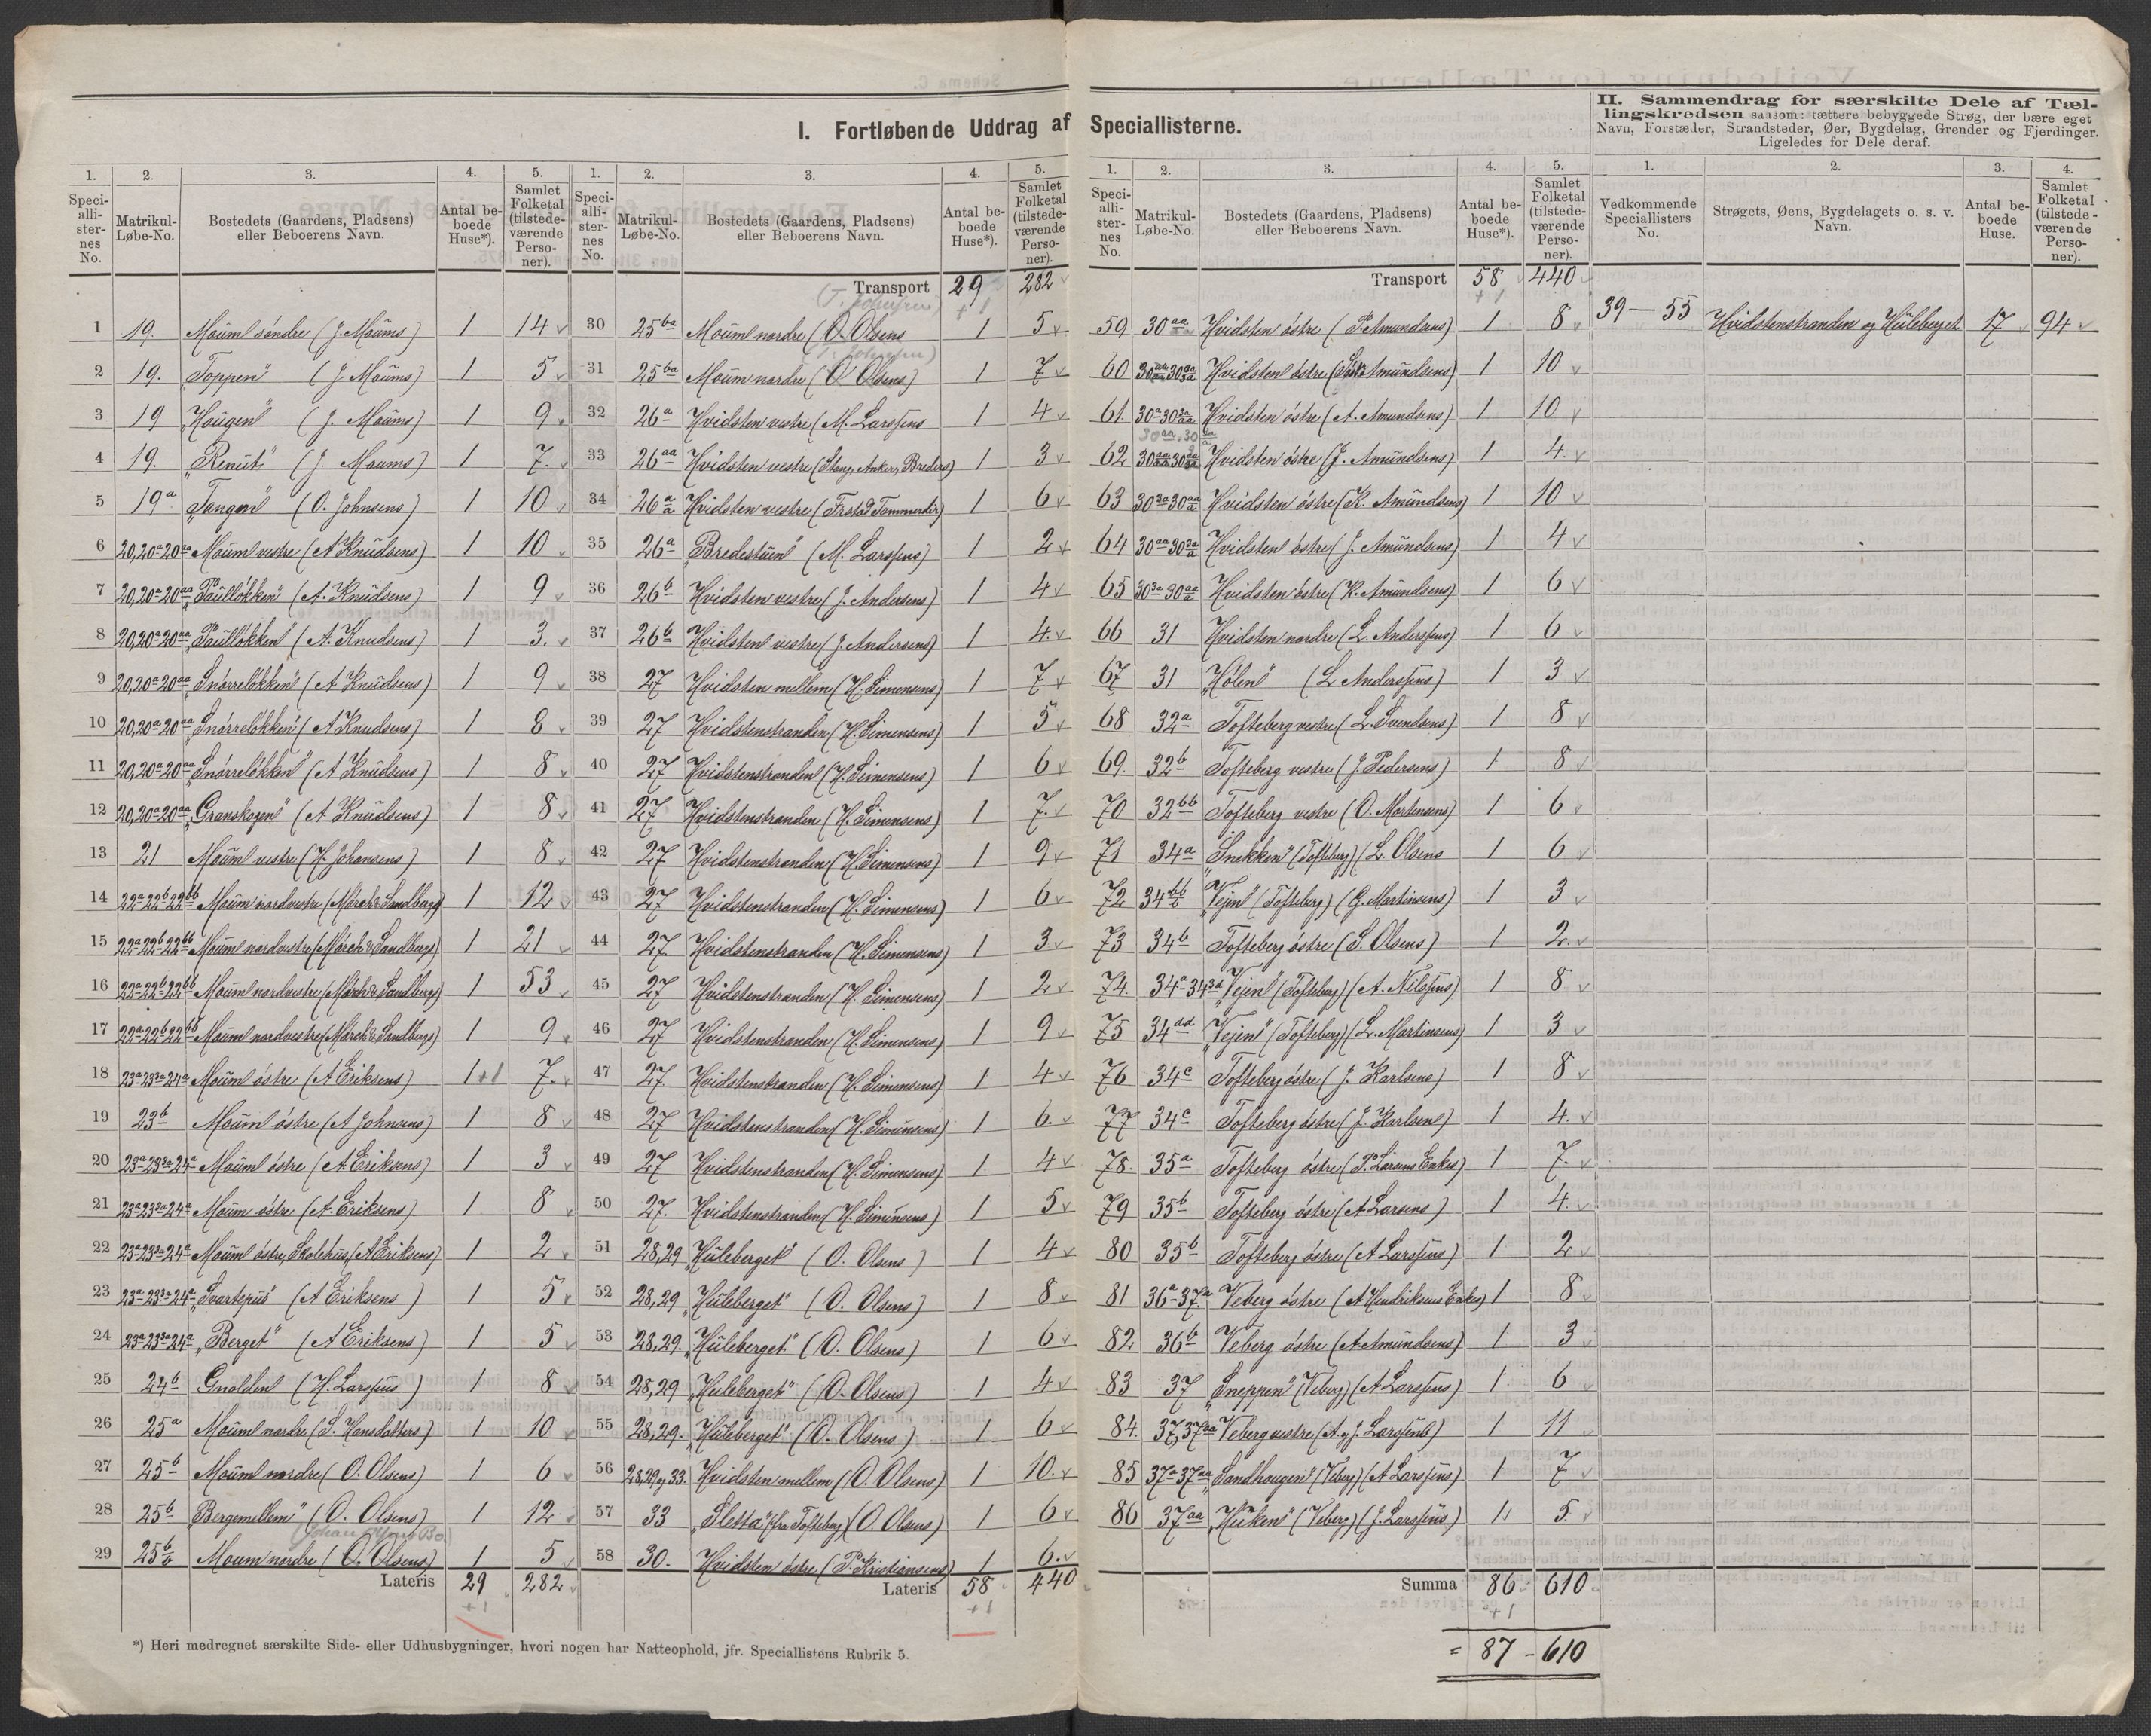 I. Fortløbende Uddrag af Speciallisterne.
II. Sammendrag for særskilte Dele af Tællingskredsen saasom: tættere bebyggede Strøg, der bære eget
Navn, Forstæder, Strandsteder, Øer, Bygdelag, Grender og Fjerdinger.
Ligeledes for Dele deraf.
1. 2. 3. 4. 5.
Speciallisternes No. Matrikul-Løbe-No. Bostedets (Gaardens, Pladsens) eller Beboerens Navn. Antal beboede Huse*). Samlet Folketal (tilstedeværende Personer).
1 19. Moum søndre (J. Moums) 1 14
2 19. "Toppen" (J. Moums) 1 5
3 19 "Hougen" (J. Moums) 1 9
4 19. "Renut" (J. Moums) 1 7.
5 19a "Tangen" (O. Johnsens) 1 10
6 20,20a-20aa Moum vestre (A Knudsens) 1 10
7 20,20a-20aa "Paulløkken" (A. Knudsens) 1 9
8 20,20a-20aa "Paulløkken" (A. Knudsens) 1 3.
9 20,20a-20aa "Snørreløkken" (A Knudsens) 1 9
10 20,20a-20aa "Snørreløkken" (A Knudsens) 1 8
11 20,20a-20aa "Snørreløkken" (A Knudsens) 1 8
12 20,20a-20aa "Granskogen" (A Knudsens) 1 8
13 21 Moum vestre (H. Johansens) 1 8
14 22a-22b-22bb Moum nordvestre (Mørch & Sandbergs) 1 12
15 22a-22b-22bb Moum nordvestre (Mørch & Sandbergs) 1 21
16 22a-22b-22bb Moum nordvestre (Mørch & Sandbergs) 1 53
17 22a-22b-22bb Moum nordvestre (Mørch & Sandbergs) 1 9
18 23a-23aa-24a Moum østre (A Eriksens) 1 +1 7.
19 23b Moum østre (A Johnsens) 1 8
20 23a-23aa-24a Moum østre (A. Eriksens) 1 3
21 23a-23aa-24a Moum østre (A. Eriksens) 1 8
22 23a-23aa-24a Moum østre, Skolehus, (A Eriksens) 1 2
23 23a-23aa-24a "Svartepus" (A Eriksens) 1 5
24 23a-23aa-24a "Berget" (A Eriksens) 1 5
25 24b Gnolden (H. Larssens) 1 8
26 25a Moum nordre (S. Hansdatters) 1 10
27 25b Moum nordre (O. Olsens) 1 6
28 25b "Bergemellem" (O. Olsens) 1 12
29 25b/b Moum nordre (O. Olsens) 1 5
Lateris 29 282
+1
1. 2. 3. 4. 5.
Speciallisternes No. Matrikul-Løbe-No. Bostedets (Gaardens, Pladsens) eller Beboerens Navn. Antal beboede Huse*). Samlet Folketal (tilstedeværende Personer).
Transport 29 282
+1
30 25ba Moum nordre (O. Olsens 1 5
31 25ba Moum nordre (O Olsens) 1 7
32 26a Hvidsten vestre (M. Larssens 1 4
33 26aa Hvidsten vestre (Stang, Anker, Breders) 1 3
34 26a/a Hvidsten vestre (Frstad Tømmerdir) 1 6
35 26a "Bredestuen" (M. Larssens) 1 2
36 26b Hvidsten vestre (J. Andersens) 1 4
37 26b Hvidsten vestre (J. Andersens) 1 4
38 27 Hvidsten mellem (H. Simensens) 1 7
39 27 Hvidstenstranden (H. Simensens) 1 5
40 27 Hvidstenstranden (H. Simensens) 1 6
41 27 Hvidstenstranden (H. Simensens) 1 7.
42 27 Hvidstenstranden (H. Simensens) 1 9
43 27 Hvidstenstranden (H. Simensens) 1 6
44 27. Hvidstenstranden (H. Simensens) 1 3
45 27 Hvidstenstranden (H. Simensens) 1 2
46 27 Hvidstenstranden (H. Simensens) 1 9
47 27 Hvidstenstranden (H. Simensens) 1 4
48 27 Hvidstenstranden (H. Simensens) 1 6.
49 27 Hvidstenstranden (H. Simensens) 1 4
50 27. Hvidstenstranden (H. Simensens) 1 5
51 28,29 "Huleberget" (O. Olsens) 1 4
52 28,29 "Huleberget" (O. Olsens) 1 8
53 28,29. "Huleberget" (O. Olsens) 1 6
54 28,29 "Huleberget" (O. Olsens) 1 4
55 28,29. "Huleberget" (O. Olsens) 1 6
56 28,29 og 33. Hvidsten mellem (O. Olsens) 1 10.
57 33 "Sletta" (fra Tofteberg) (O. Olsens) 1 6
58 30. Hvidsten østre (P. Kristiansens) 1 6.
Lateris 58 440
+1
*) Heri medregnet særskilte Side- eller Udhusbygninger, hvori nogen har Natteophold, jfr. Speciallistens Rubrik 5.
1. 2. 3. 4. 5.
Speciallisternes No. Matrikul-Løbe-No. Bostedets (Gaardens, Pladsens) eller Beboerens Navn. Antal beboede Huse*). Samlet Folketal (tilstedeværende Personer).
Transport 58 440
+1
59 30aa Hvidsten østre (P. Amundsens) 1 8
60 Hvidsten østre (Amundsens) 1 10
61. Hvidsten østre (A. Amundsens) 1 10
62 Hvidsten østre (J. Amundsens) 1 4.
63 Hvidsten østre (K. Amundsens) 1 10
64 Hvidsten østre (J. Amundsens) 1 4
65 Hvidsten østre (K. Amundsens) 1 6
66 31 Hvidsten nordre (L. Anderssens) 1 6
67 31 "Hølen" (L Anderssens) 1 3
68 32a Tofteberg vestre (L. Svendsens) 1 8
69. 32b Tofteberg vestre (J. Pedersens) 1 8
70 32bb Tofteberg vestre (O. Mortensens) 1 6
71 34a "Snekken" (Tofteberg) (L. Olsens 1 6
72 34bb/b "Vejen" (Tofteberg) (G. Martinsens) 1 3
73 34b Tofteberg østre (S. Olsens) 1 2.
74. 34a-34aa "Vejen" (Tofteberg) (A. Nilssens) 1 8
75 34dd "Vejen" (Tofteberg) (L. Martinsens) 1 3
76 34c Tofteberg østre (J. Karlsens) 1 8
77 34c Tofteberg østre (J. Karlsens) 1 4.
78. 35a Tofteberg østre (P. Larsens Enkes) 1 7.
79 35b Tofteberg østre (A Larsens) 1 4.
80 35b Tofteberg østre (A Larssens) 1 2
81 36a-37a Veberg østre (A Hendriksens Enkes) 1 8
82 36b Veberg østre (A. Amundsens) 1 3
83 37 "Sneppen" (Veberg) (A Larssens) 1 6
84. 37,37aa Veberg vestre (A. og J. Larssens) 1 11
85 37a-37aa "Sandhaugen" (Veberg) (A Larssens) 1 7
86 37aa "Huken" (Veberg) (J. Larssens) 1 5
Summa 86 610
+1
= 87 - 610
1. 2. 3. 4.
Vedkommende Speciallisters No. Strøgets, Øens, Bygdelagets o. s. v. Navn. Antal beboede Huse. Samlet Folketal (tilstedeværende Personer).
39 — 55 Hvidstenstranden og Huleberget 17 94